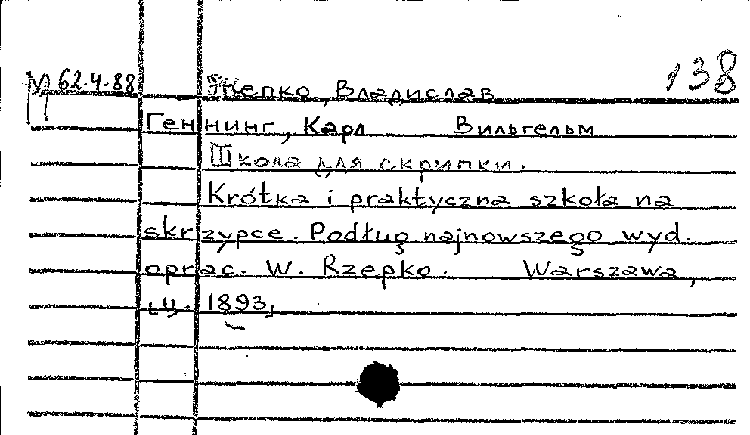 М 62.4.88 Жепко, Владислав 138
Геннинг, Карл Вильгельм
Школа для скрипки.
Krótka i praktyczna szkoła na
skrzypce. Podług najnowszego wyd.
oprac. W. Rzepko. Warszawa,
ц. 1893,